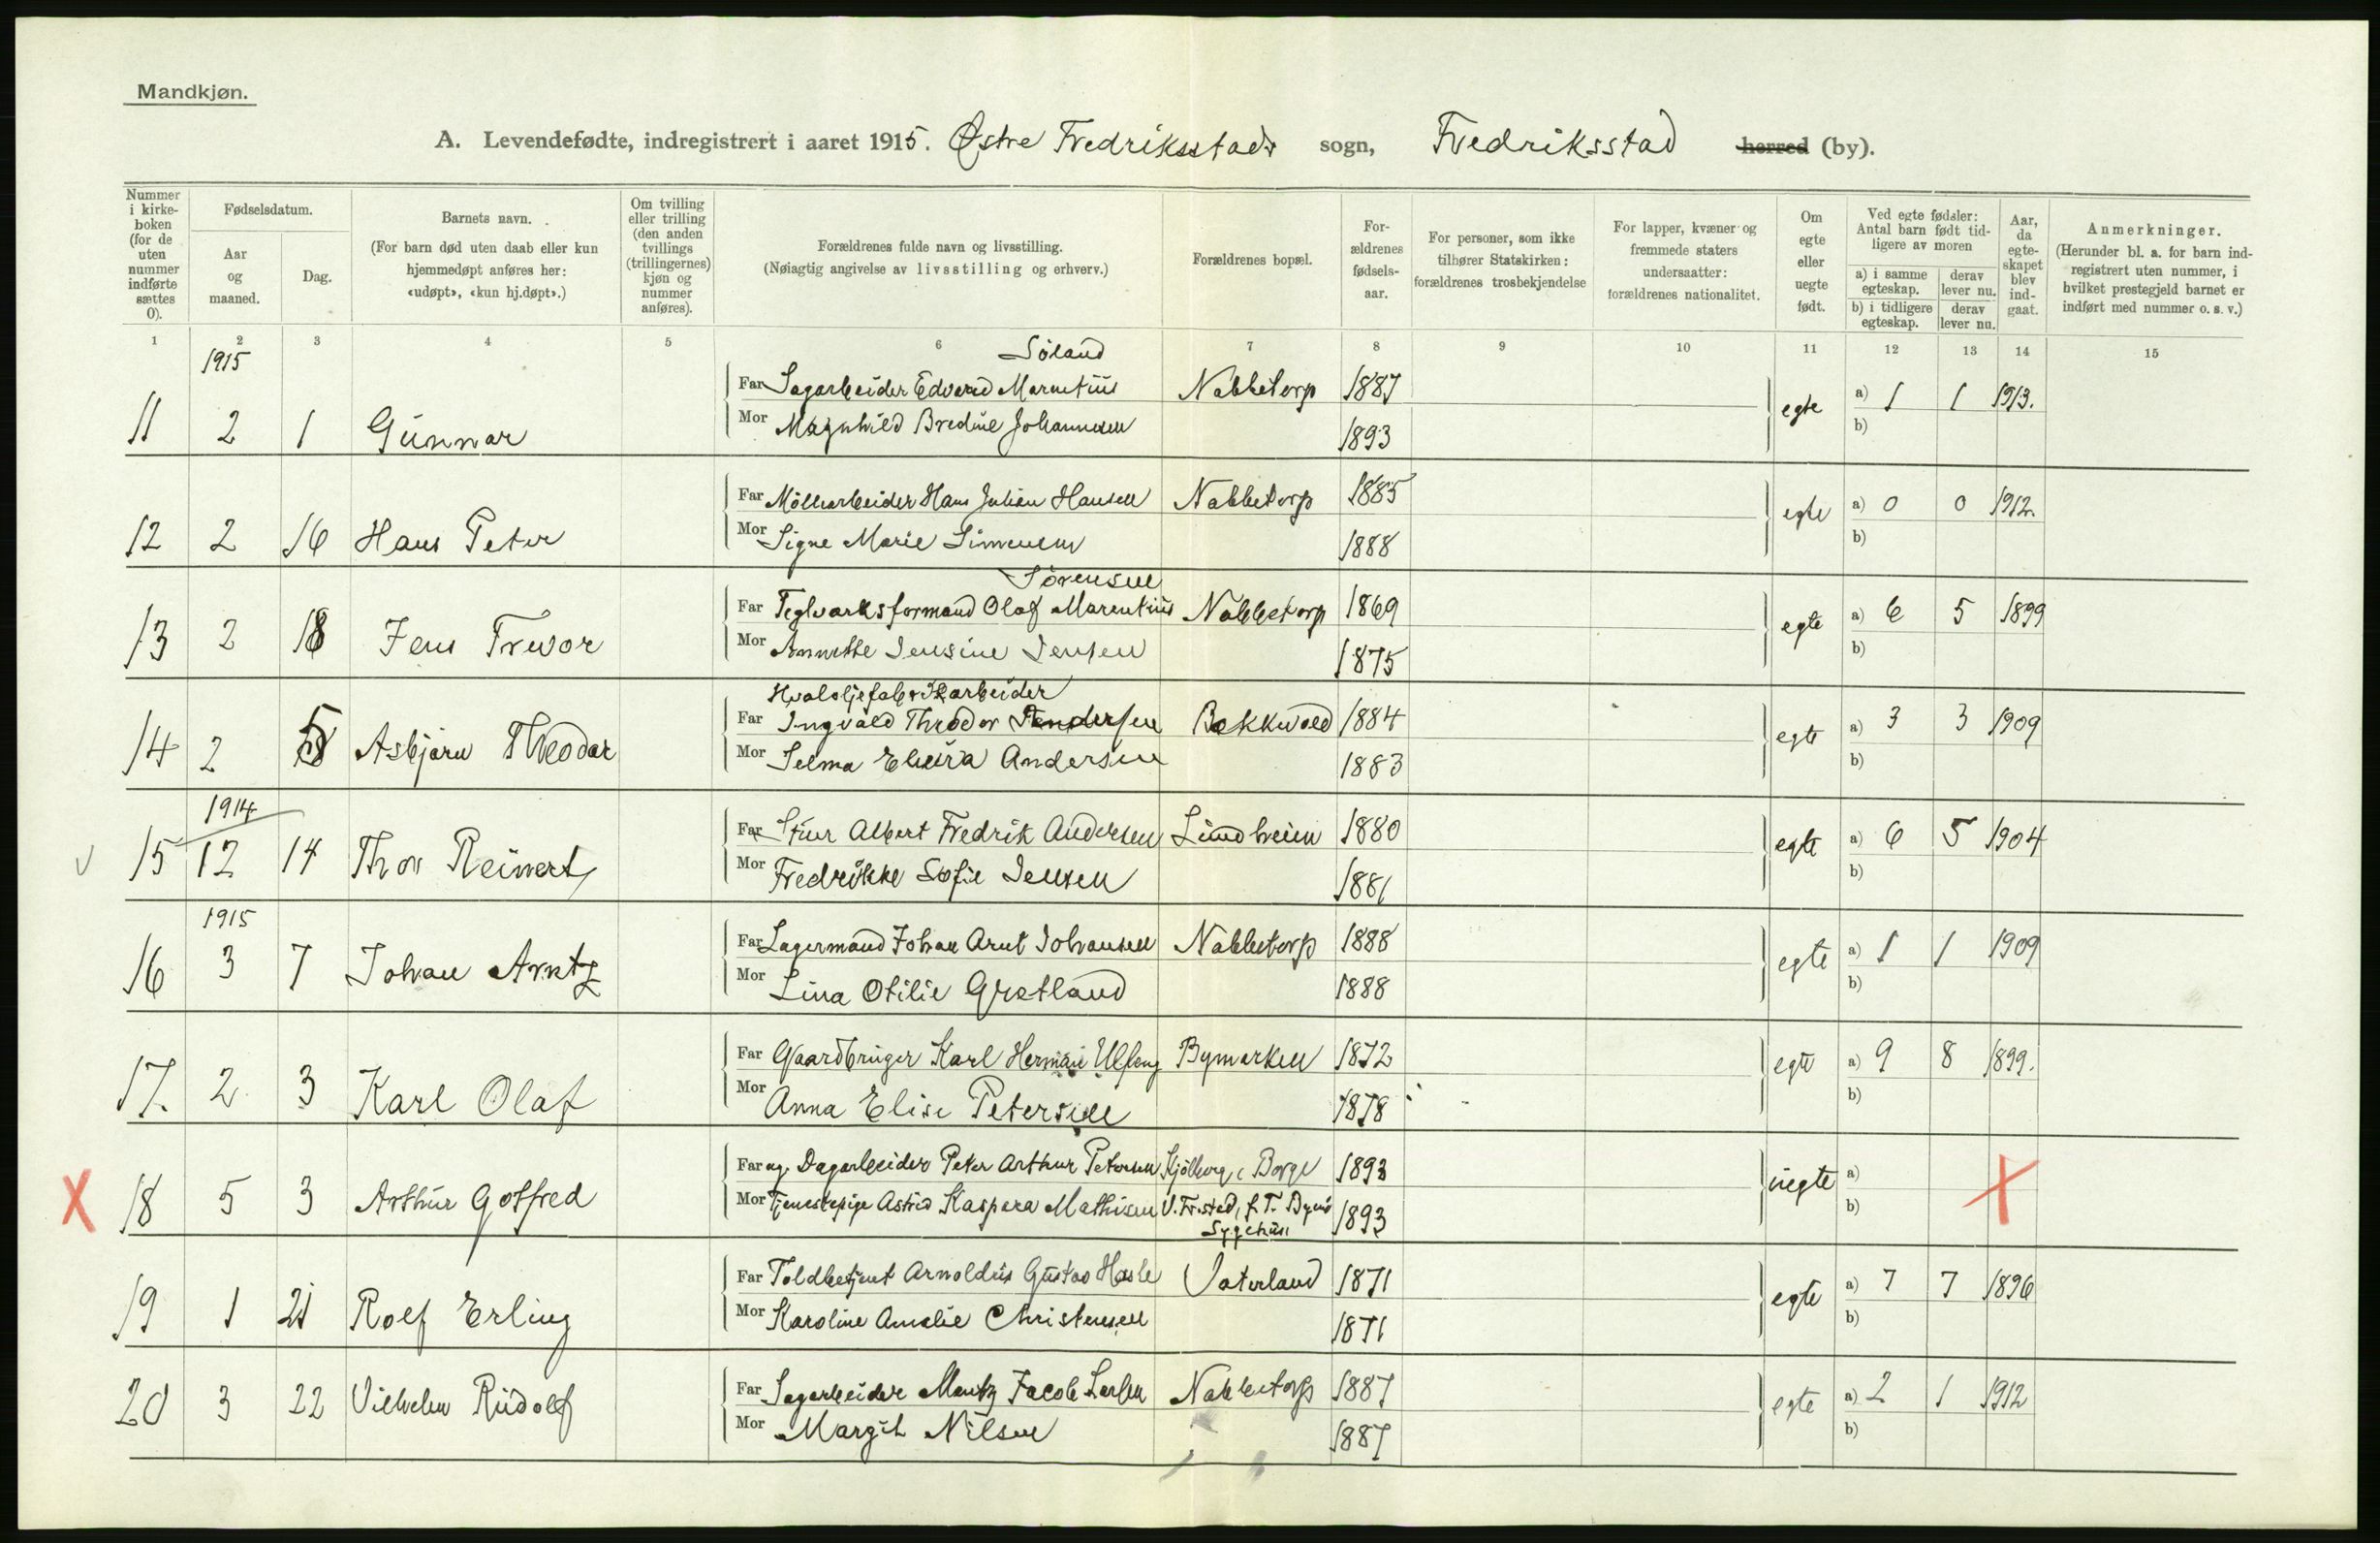 Mandkjøn.
A. Levendefødte, indregistrert i aaret 1915. Østre Fredriksstads sogn, Fredriksstad herred (by).
Nummer i kirke-boken (for de uten nummer indførte sættes 0).
Fødselsdatum.
Aar og maaned.
Dag.
Barnets navn.
(For barn død uten daab eller kun hjemmedøpt anføres her: «udøpt», «kun hj.døpt».)
Om tvilling eller trilling (den anden tvillings (trillingernes) kjøn og nummer anføres).
Forældrenes fulde navn og livsstilling.
(Nøiagtig angivelse av livsstilling og erhverv.)
Forældrenes bopæl.
For-ældrenes fødsels-aar.
For personer, som ikke tilhører Statskirken: forældrenes trosbekjendelse
For lapper, kvæner og fremmede staters undersaatter: forældrenes nationalitet.
Om egte eller uegte født.
Ved egte fødsler: Antal barn født tid-ligere av moren
a) i samme egteskap.
derav lever nu.
b) i tidligere egteskap.
derav lever nu.
Aar, da egte-skapet blev ind-gaat.
Anmerkninger.
(Herunder bl. a. for barn ind-registrert uten nummer, i hvilket prestegjeld barnet er indført med nummer o. s. v.)
1 2 3 4 5 6 7 8 9 10 11 12 13 14 15
1915 Söland
11 2 1 Gunnar Far Sagarbeider Edvard Marentius Nabbetorp 1887 egte a) 1 1 1913.
Mor Magnhild Bredine Johannesen 1893 b)
12 2 16 Hans Peter Far Möllearbeider Hans Julian Hansen Nabbetorp 1885 egte a) 0 0 1912.
Mor Signe Marie Simensen 1888 b)
Sörensen
13 2 18 Jens Trevor Far Teglværksformand Olaf Marentius Nabbetorp 1869 egte a) 6 5 1899
Mor Annette Jensine Jensen 1875 b)
Hvaloljefabrikarbeider
14 2 5 Asbjørn Theodor Far Ingvald Theodor Andersen Bakkevold 1884 egte a) 3 3 1909
Mor Selma Elvira Andersen 1883 b)
1914
15 12 14 Thor Reinert Far Stuer Albert Fredrik Andersen Lundheim 1880 egte a) 6 5 1904
Mor Fredrikke Sofie Jensen 1881 b)
1915
16 3 7 Johan Arntz Far Lagermand Johan Arnt Johansen Nabbetorp 1888 egte a) 1 1 1909
Mor Lina Otilie Gretland 1888 b)
17. 2 3 Karl Olaf Far Gaardbruger Karl Herman Ulfeng Bymarken 1872 egte a) 9 8 1899.
Mor Anna Elise Petersen 1878 b)
X 18 5 3 Arthur Gotfred Far ug. Dagarbeider Peter Arthur Petersen Kjölberg, Borge 1893 uegte a) X
Mor Tjenestepige Astrid Kaspara Mathisen V. Fr.stad, f. T. Byens 1893 b)
Sygehus
19 1 21 Rolf Erling Far Toldbetjent Arnoldus Gustav Hasle Vaterland 1871 egte a) 7 7 1896
Mor Karoline Amalie Christensen 1871 b)
20 3 22 Vilhelm Rudolf Far Sagarbeider Mentz Jacob Larsen Nabbetorp 1887 egte a) 2 1 1912
Mor Margit Nilsen 1887 b)